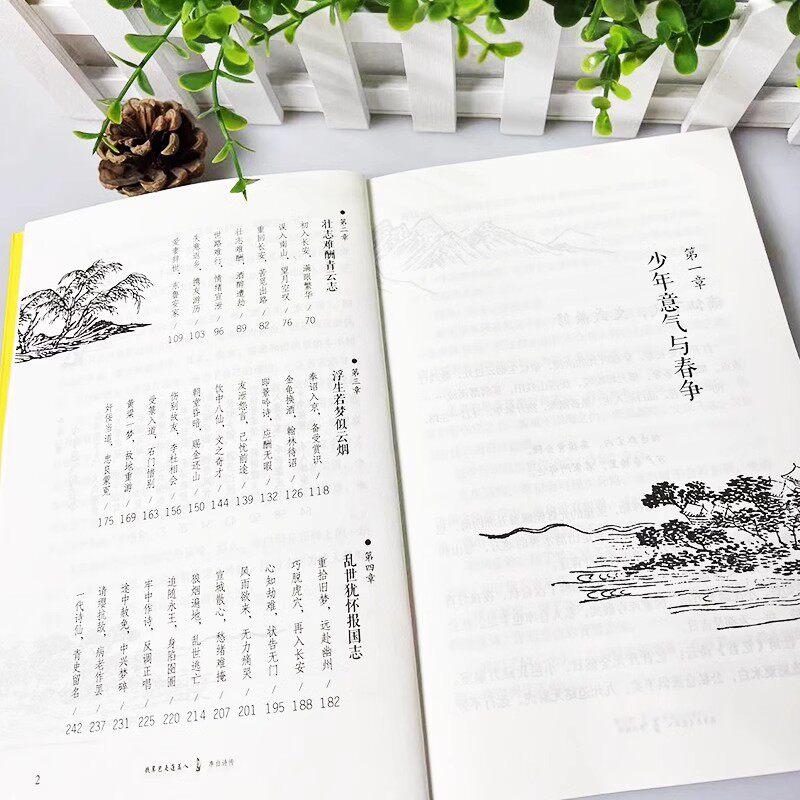 第二章
壮志难酬青云志
初入长安，满眼繁华 / 70
误入南山，望月空叹 / 76
重回长安，苦觅出路 / 82
壮志难酬，酒醉遭劫 / 89
世路难行，情绪宣泄 / 96
失意返乡，携友游历 / 103
爱妻辞世，东鲁安家 / 109
第三章
浮生若梦似云烟
奉诏入京，备受赏识 / 118
金龟换酒，翰林待诏 / 126
即景吟诗，应酬无暇 / 132
友泄怨言，己忧前途 / 139
饮中八仙，文之奇才 / 144
朝堂昏暗，赐金还山 / 150
伤别故友，李杜相会 / 156
受箓入道，石门惜别 / 163
黄粱一梦，故地重游 / 169
奸佞当道，忠良蒙冤 / 175
第四章
乱世犹怀报国志
重拾旧梦，远赴幽州 / 182
巧脱虎穴，再入长安 / 188
心知劫难，状告无门 / 195
风雨欲来，无力痛哭 / 201
宣城散心，愁绪难掩 / 207
狼烟遍地，乱世逃亡 / 214
追随永王，身陷囹圄 / 220
牢中作诗，反调正唱 / 225
途中赦免，中兴梦碎 / 231
请缨抗敌，病老作罢 / 237
一代诗仙，青史留名 / 242
2
我辈岂是蓬蒿人 李白诗传
第一章
少年意气与春争